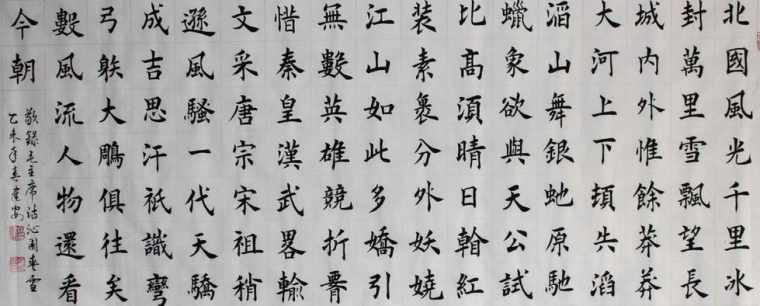 北國風光千里冰
封萬里雪飄望長
城內外惟餘莽莽
大河上下頓失滔
滔山舞銀虵原馳
蠟象欲與天公試
比高須晴日看紅
裝素裹分外妖嬈
江山如此多嬌引
無數英雄競折腰
惜秦皇漢武畧輸
文采唐宗宋祖稍
遜風騷一代天驕
成吉思汗衹識彎
弓䠶大鵰俱往矣
數風流人物還看
今朝
敬錄毛主席詩沁園春雪
乙未年